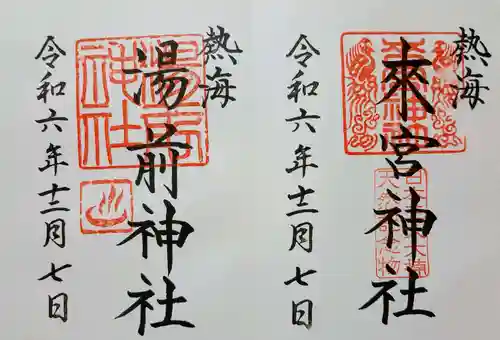 熱海
來宮神社
令和六年十二月七日
熱海
湯前神社
令和六年十二月七日